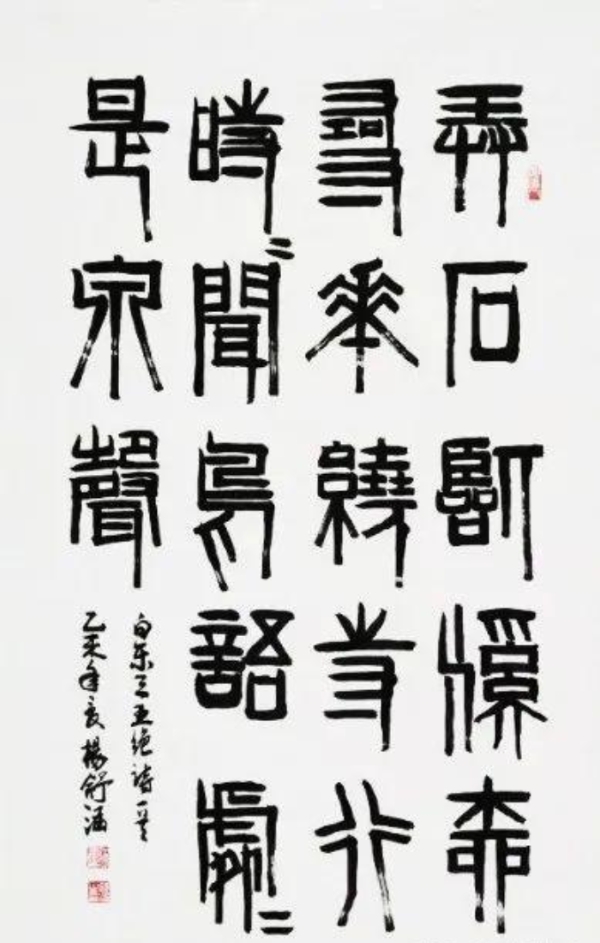 弄石臨溪坐
尋花繞寺行
時〻聞鳥語處〻
是泉聲
白樂天五絕詩一首
乙未年夏楊舒涵